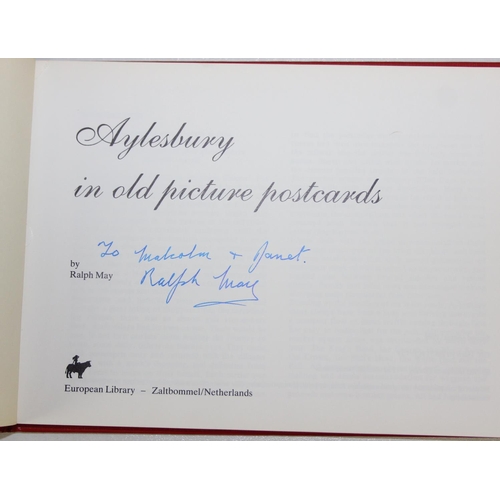 Aylesbury
in old picture postcards
To Malcolm + Janet.
by
Ralph May
Ralph May
European Library – Zaltbommel/Netherlands